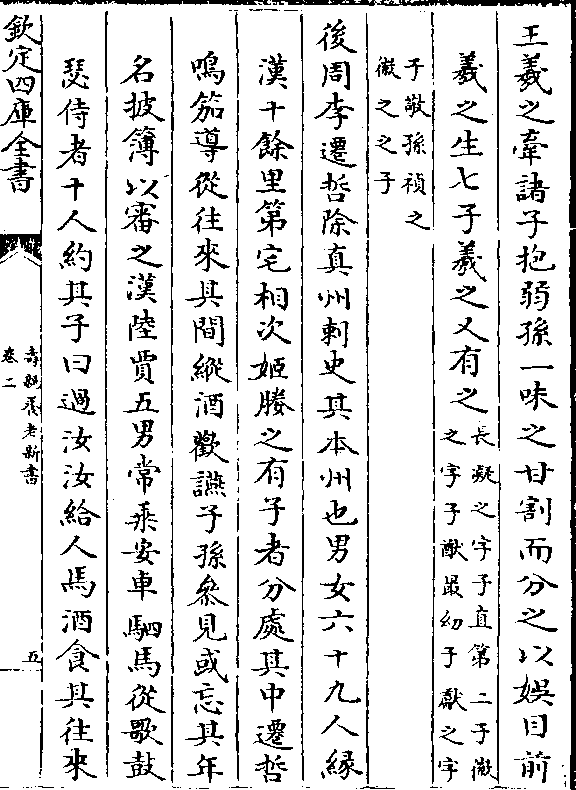 王羲之牽諸子抱弱孫一味之甘割而分之以娛目前
羲之生七子羲之又有之
長凝之字子直第二子微
之字子猷最幼子獻之字
子敬孫禎之
微之之子
後周李遷哲除真州刺史其本州也男女六十九人緣
漢十餘里第宅相次姬媵之有子者分處其中遷哲
鳴笳導從往來其間縱酒歡讌子孫叅見或忘其年
名披簿以審之漢陸賈五男常乗安車駟馬從歌鼓
瑟侍者十人約其子曰過汝汝給人馬酒食其往來
欽定四庫全書
壽親養老新書
卷二
五